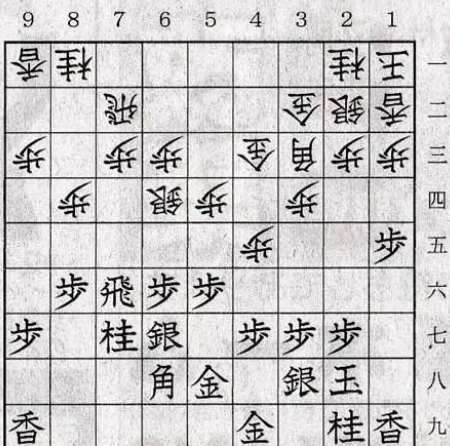 9 8 7 6 5 4 3 2 1
香 桂 桂 王 一
飛 金 銀 香 二
歩 歩 歩 金 角 歩 歩 三
歩 銀 歩 歩 四
歩 歩 五
歩 飛 歩 歩 六
歩 桂 銀 歩 歩 歩 七
角 金 銀 玉 八
香 金 桂 香 九